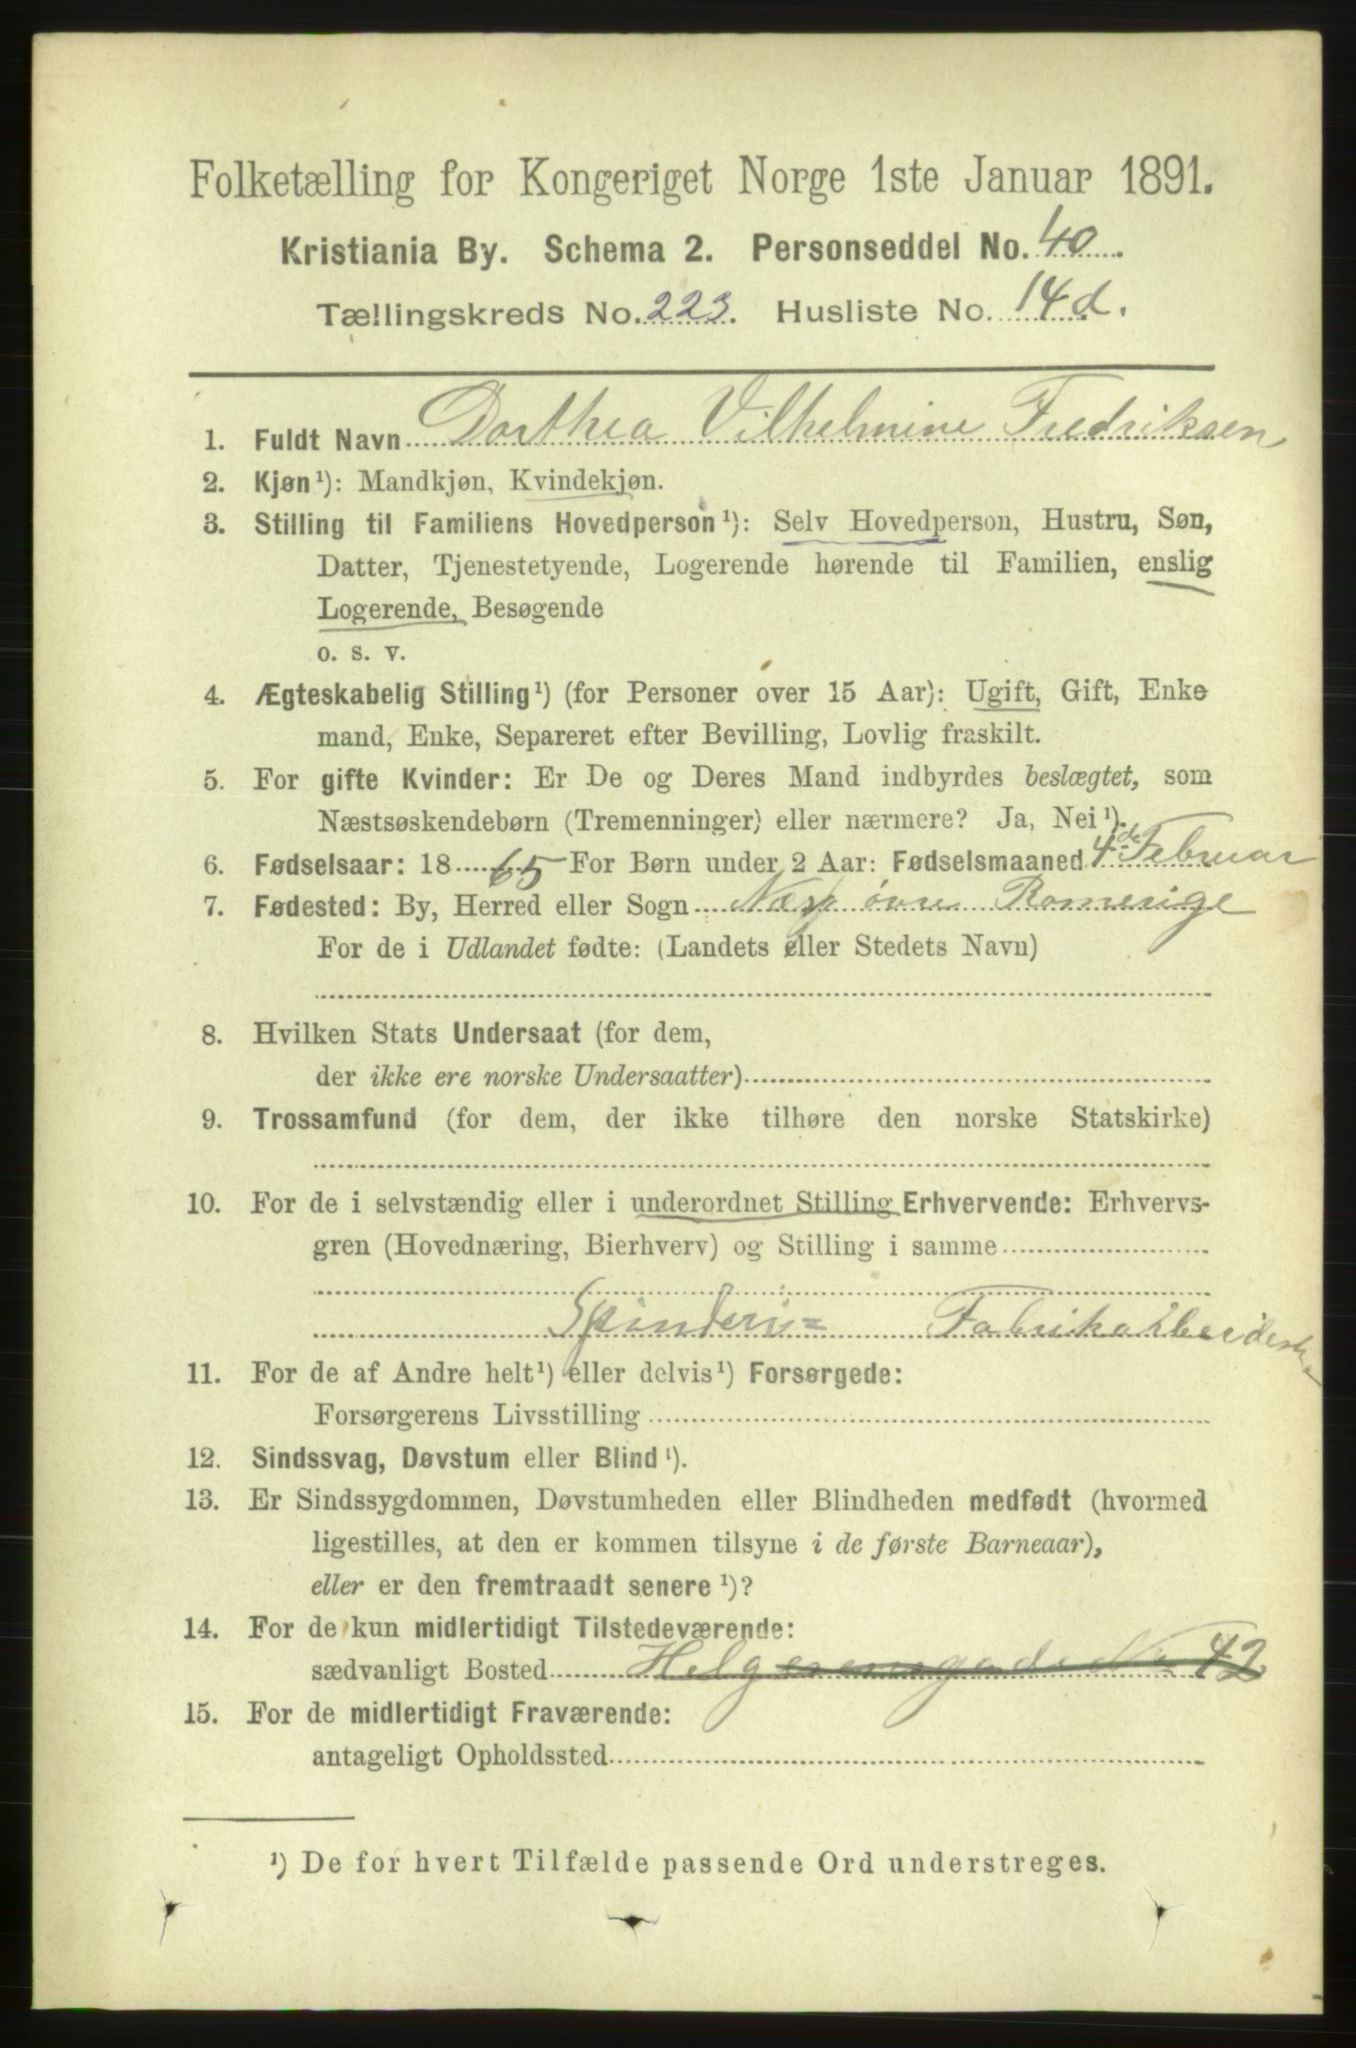 Folketælling for Kongeriget Norge 1ste Januar 1891.
Kristiania By. Schema 2. Personseddel No. 40
Tællingskreds No. 223. Husliste No. 14d.
1. Fuldt Navn Dorthea Vilhelmine Fredriksen
2. Kjøn¹): Mandkjøn, Kvindekjøn.
3. Stilling til Familiens Hovedperson¹): Selv Hovedperson, Hustru, Søn,
Datter, Tjenestetyende, Logerende hørende til Familien, enslig
Logerende, Besøgende
o. s. v.
4. Ægteskabelig Stilling¹) (for Personer over 15 Aar): Ugift, Gift, Enke
mand, Enke, Separeret efter Bevilling, Lovlig fraskilt.
5. For gifte Kvinder: Er De og Deres Mand indbyrdes beslægtet, som
Næstsøskendebørn (Tremenninger) eller nærmere? Ja, Nei¹).
6. Fødselsaar: 18 65 For Børn under 2 Aar: Fødselsmaaned 4de Februar
7. Fødested: By, Herred eller Sogn Næs øvre Romerige
For de i Udlandet fødte: (Landets eller Stedets Navn)
8. Hvilken Stats Undersaat (for dem,
der ikke ere norske Undersaatter)
9. Trossamfund (for dem, der ikke tilhøre den norske Statskirke)
10. For de i selvstændig eller i underordnet Stilling Erhvervende: Erhvervs-
gren (Hovednæring, Bierhverv) og Stilling i samme
Spinderi= Fabrikarbeiderske
11. For de af Andre helt¹) eller delvis¹) Forsørgede:
Forsørgerens Livsstilling
12. Sindssvag, Døvstum eller Blind¹).
13. Er Sindssygdommen, Døvstumheden eller Blindheden medfødt (hvormed
ligestilles, at den er kommen tilsyne i de første Barneaar),
eller er den fremtraadt senere¹)?
14. For de kun midlertidigt Tilstedeværende:
sædvanligt Bosted Helgesensgade No 42
15. For de midlertidigt Fraværende:
antageligt Opholdssted
¹) De for hvert Tilfælde passende Ord understreges.